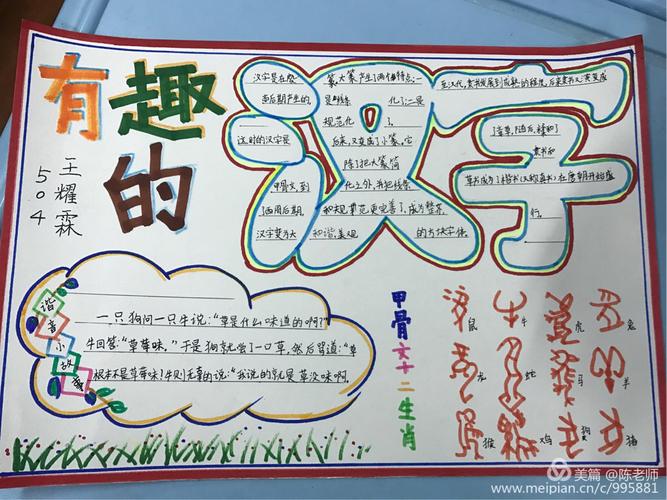 有趣的
汉字
王耀霖
504
汉字是在殷
商后期产生的,
这时的汉字是
甲骨文,到
了西周后期,
汉字楚为大
篆,大篆产生了两个特点:一
是线条
化了,二是
规范化
了。
后来,又变成了小篆,它
除了把大篆简
化之外,并把线条
和规范更完善了,成为整齐
和谐、美观
的方块字体。
在汉代,隶书发展到成熟的
草书成为了楷书(又称真书)在唐朝开始盛
行。
谐音小故事
一只狗问一只牛说:“草是什么味道的啊?”
牛回答:“草莓味。”于是狗就尝了一口草,然后骂道:“草
根本不是草莓味!牛则无辜的说:“我说的就是草没味啊。
甲骨文十二生肖
鼠 牛 虎 兔
龙 蛇 马 羊
猴 鸡 狗 猪
美篇 @陈老师
www.meipian.cn/c/995881